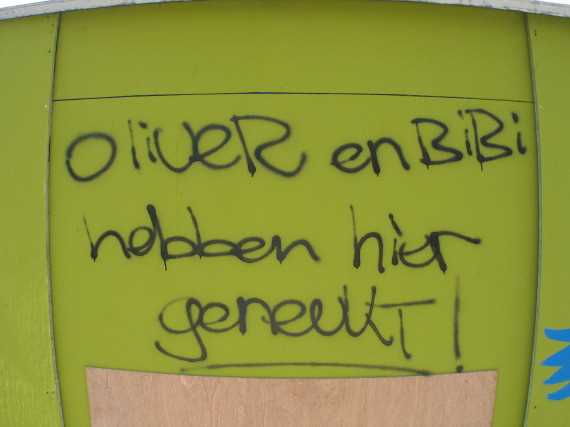 OliVER en BiBi
hebben hier
gereukT!